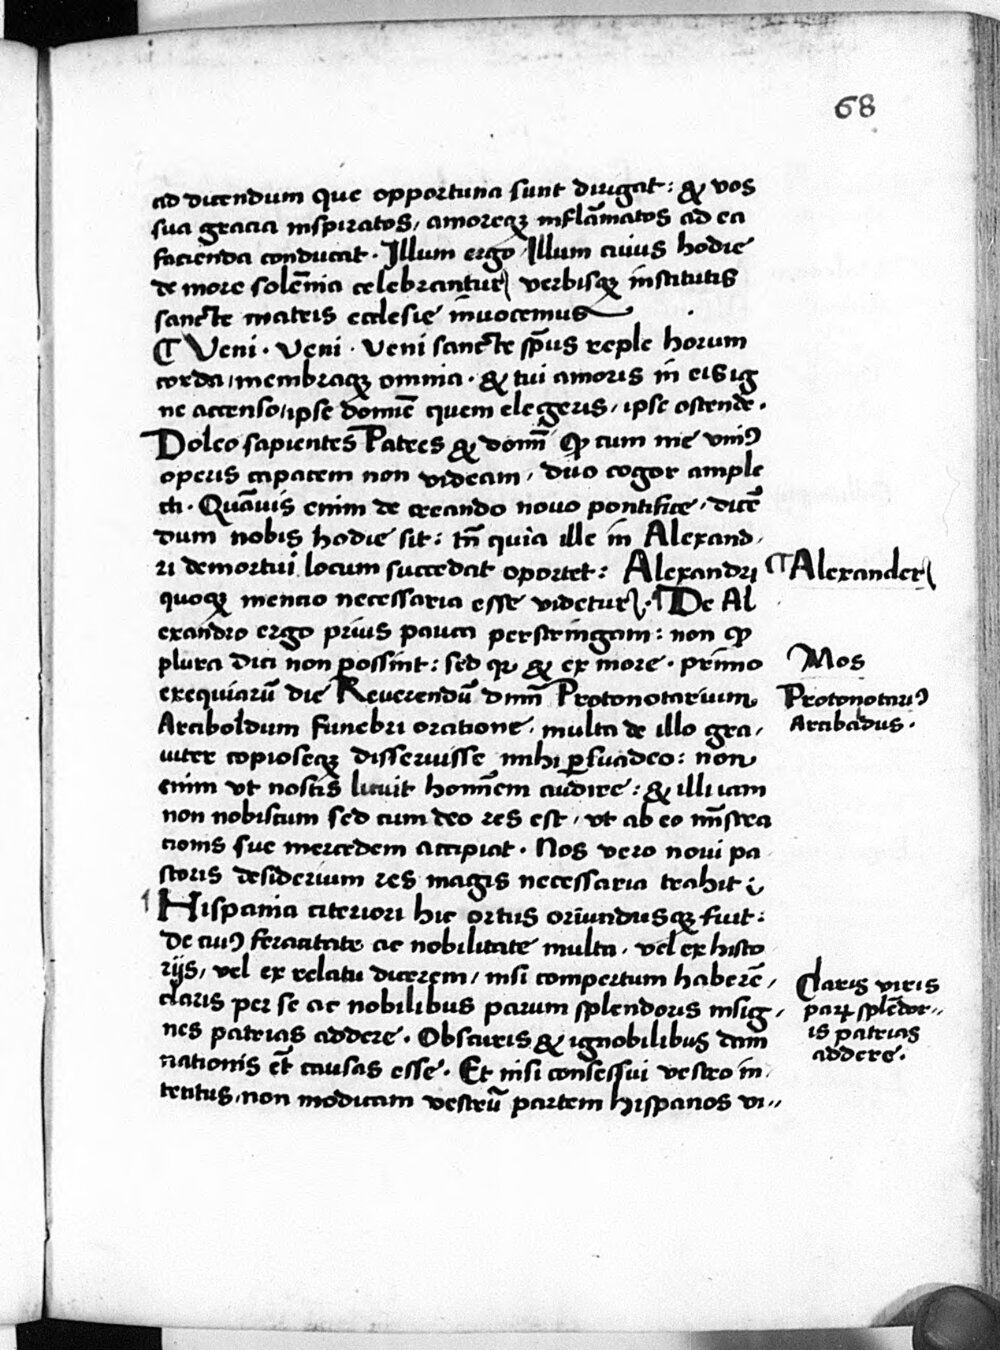 68
ad dicendum que opportuna sunt dirigat: & vos
sua gracia inspiratos, amoreqꝫ inflāmatos ad ea
facienda conducat. Illum ergo Illum cuius hodie
de more solēnia celebrantur, verbisqꝫ institutis
sancte matris ecclesie invocemus
¶ Veni. Veni. Veni sancte sp̄us reple horum
corda, membraqꝫ omnia. & tui amoris in eis ig
ne accenso, ipse domiē quem elegeris, ipse ostende.
Doleo sapientes Patres & domī ꝙ cum me vniꝰ
operis capacem non videam, duo cogor ample
cti. Quāuis enim de creando novo pontifice, dicē
dum nobis hodie sit: tn̄ quia ille in Alexand,
ri demortui locum succedat oportet: Alexandri
¶Alexander
quoqꝫ mencio necessaria esse videtur. ¶De Al
exandro ergo prius pauca perstringam: non ꝙ
plura dici non possint: sed qꝛ & ex more. primo
Mos
exequiarū die Reverendū dm̄m Protonotarium
Protonotariꝰ
Arciboldum funebri oratione, multa de illo gra,
Arcibadus.
uiter copioseqꝫ disseruisse mihi ꝑsuadeo: non
enim vt nostis licuit homīem audire: & illi iam
non nobiscum sed cum deo res est, vt ab eo mīstra
cionis sue mercedem accipiat. Nos vero novi pa
storis desiderium res magis necessaria trahit
¶ Hispania citeriori hic ortus oriundusqꝫ fuit:
De cuiꝰ feracitate ac nobilitate multa, vel ex histo
rijs, vel ex relatu dicerem, nisi compertum haberē,
claris per se ac nobilibus parum splendoris insig,
Claris viris
parꝝ splēdor,,
nes patrias addere. Obscuris & ignobilibus dam
is patrias
addere.
nationis et̄ causas esse. Et nisi consessui vestro in,
tentus, non modicam vestrū partem hispanos vi,,